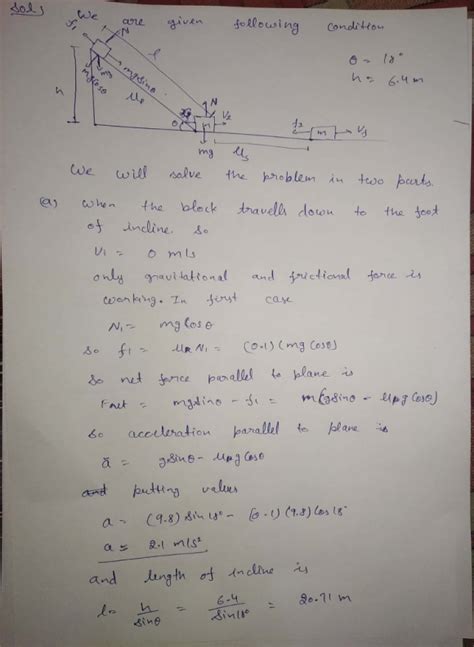 Sol:
We are given following condition
θ = 18°
h = 6.4 m
N
l
f1
mgsinθ
mgcosθ
h
θ
N
m
V2
mg
f2
m
V3
We will solve the problem in two parts.
(a) When the block travells down to the foot
of incline. So
V1 = 0 m/s
only gravitational and frictional force is
working. In first case
N1 = mgcosθ
so f1 = μk N1 = (0.1) (mg cosθ)
So net force parallel to plane is
Fnet = mgsinθ - f1 = m(gsinθ - μkg cosθ)
So acceleration parallel to plane is
a = gsinθ - μkg cosθ
and putting values
a = (9.8) sin 18° - (0.1) (9.8) cos 18°
a = 2.1 m/s²
and length of incline is
l = h/sinθ = 6.4/sin18° = 20.71 m